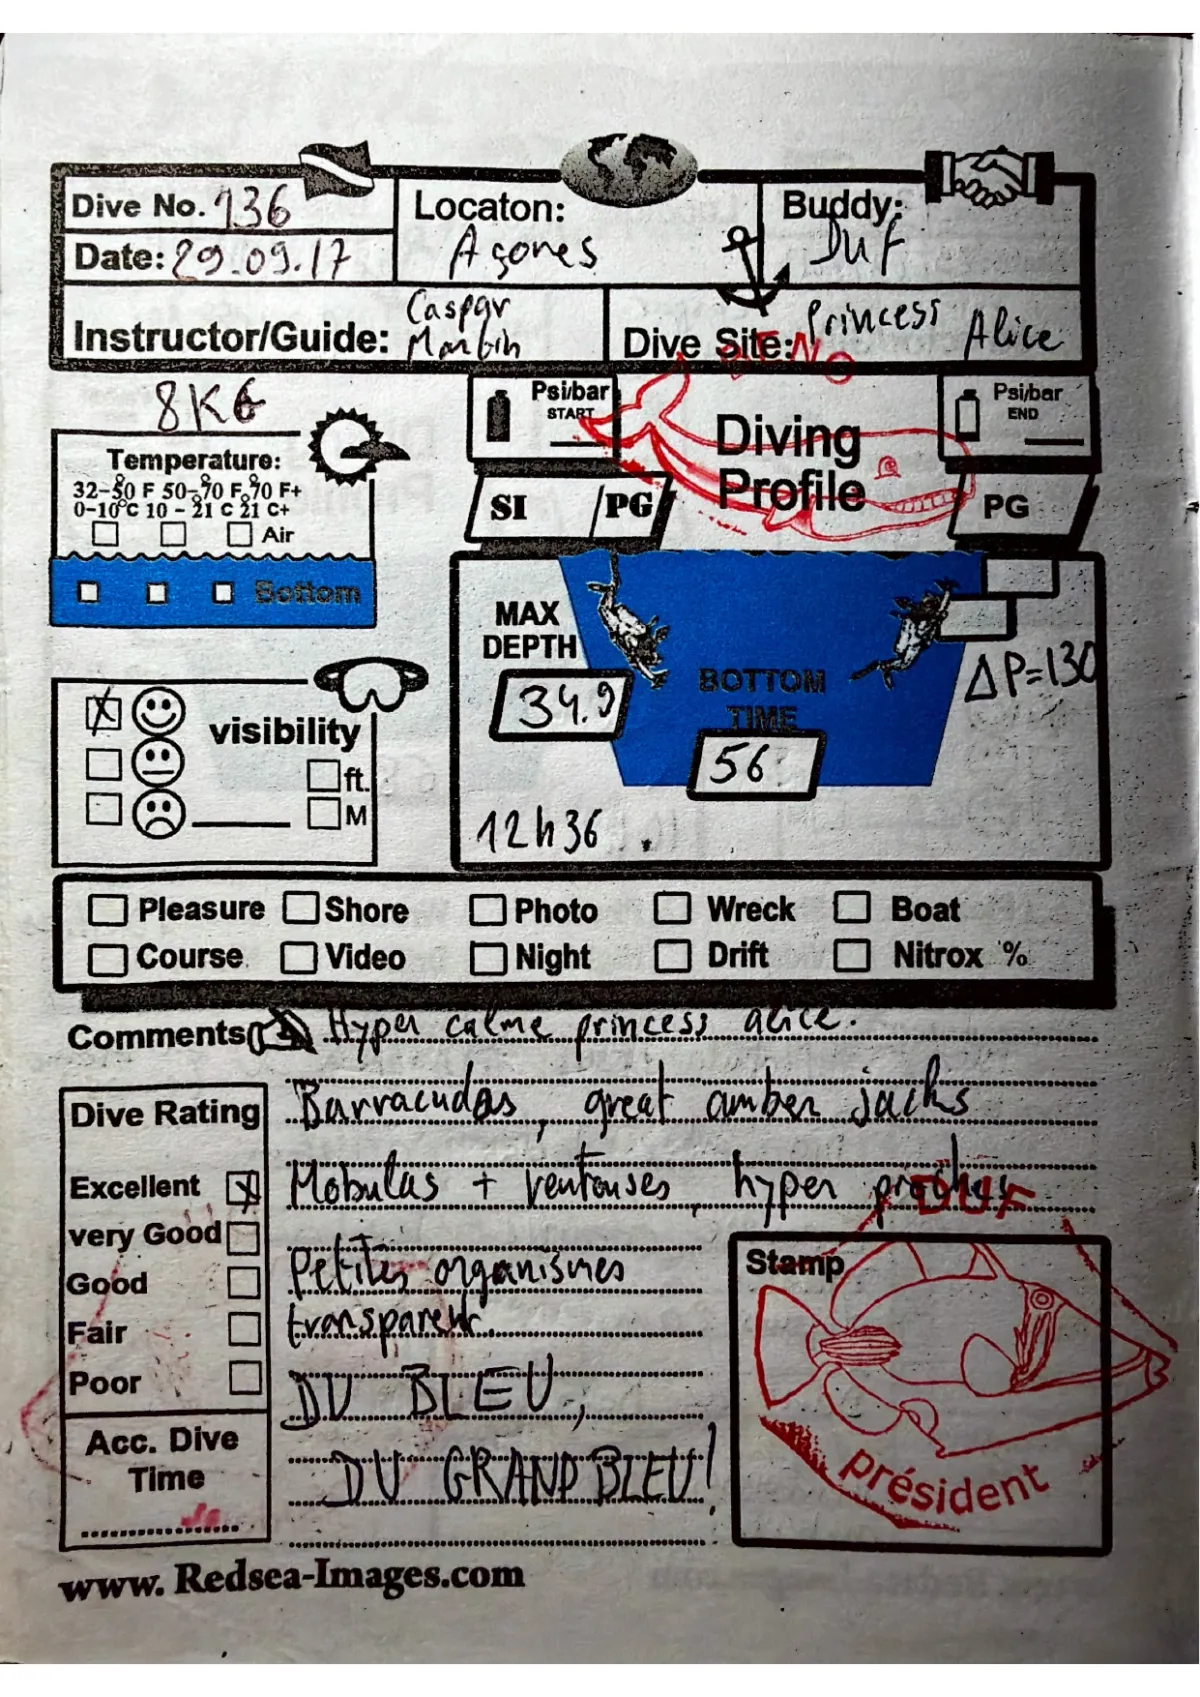 Dive No. 136
Date: 29.09.17
Locaton:
Açores
Buddy:
Duf
Instructor/Guide: Caspar
Martin
Dive Site: Princess Alice
8KG
Psi/bar
START
Diving
Profile
Psi/bar
END
SI /PG
PG
Temperature:
32-50 F 50-70 F 70 F+
0-10°C 10 - 21 C 21 C+
Air
Bottom
MAX
DEPTH
34.9
BOTTOM
TIME
56
ΔP=130
12h36
visibility
ft.
M
Pleasure Shore Photo Wreck Boat
Course Video Night Drift Nitrox %
Comments Hyper calme princess alice.
Barracudas, great amber jacks
Mobulas + ventouses, hyper proches
Petites organismes
transparents
DU BLEU,
DU GRAND BLEU!
Dive Rating
Excellent
very Good
Good
Fair
Poor
Acc. Dive
Time
DUF
Stamp
président
www. Redsea-Images.com